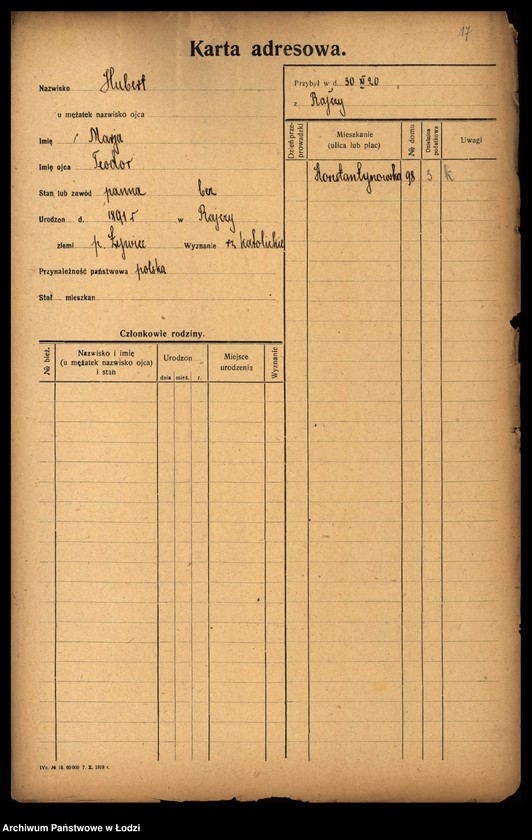 17
Karta adresowa.
Nazwisko Hubert
u mężatek nazwisko ojca
Imię Marja
Imię ojca Teodor
Stan lub zawód panna bez
Urodzon d. 1891 r w Rajczy
ziemi p. Żywiec Wyznanie rz. katolickie
Przynależność państwowa polska
Stał mieszkan
Członkowie rodziny.
№ bież. Nazwisko i imię (u mężatek nazwisko ojca) i stan Urodzon dnia mies. r. Miejsce urodzenia Wyznanie
Przybył w d. 30 XI 20
z Rajczy
Dzień przeprowadzki Mieszkanie (ulica lub plac) № domu Dzielnica podatkowa Uwagi
Konstantynowska 98 3 k
IVc. № 18. 60 000 7. X. 1919 r.
Archiwum Państwowe w Łodzi